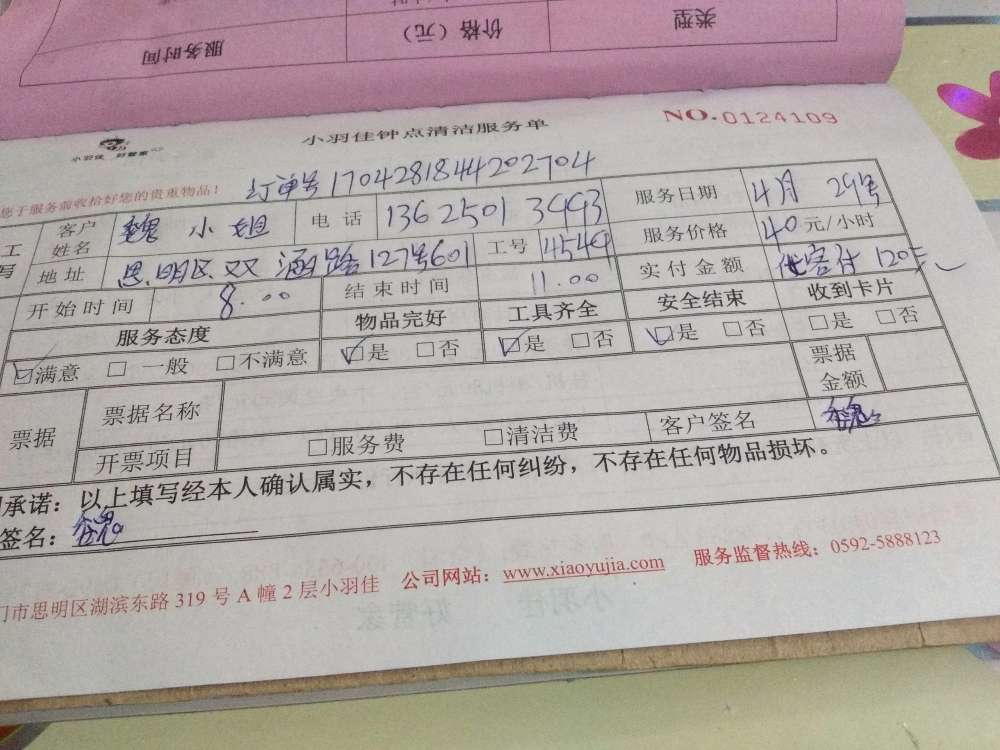 类型 价格（元） 服务时间
小羽佳 好管家
小羽佳钟点清洁服务单 NO.0124109
您于服务前收拾好您的贵重物品！ 订单号1704281844202704
工 客户姓名 魏小姐 电话 13625013493 服务日期 4月29号
写 地址 思明区双涵路127号601 工号 4549 服务价格 40元/小时
开始时间 8.00 结束时间 11.00 实付金额 客付120元
服务态度 物品完好 工具齐全 安全结束 收到卡片
☑满意 □一般 □不满意 ☑是 □否 ☑是 □否 ☑是 □否 □是 □否
票据 票据名称 票据金额
开票项目 □服务费 □清洁费 客户签名 魏
承诺：以上填写经本人确认属实，不存在任何纠纷，不存在任何物品损坏。
签名：魏
门市思明区湖滨东路319号A幢2层小羽佳 公司网站：www.xiaoyujia.com 服务监督热线：0592-5888123